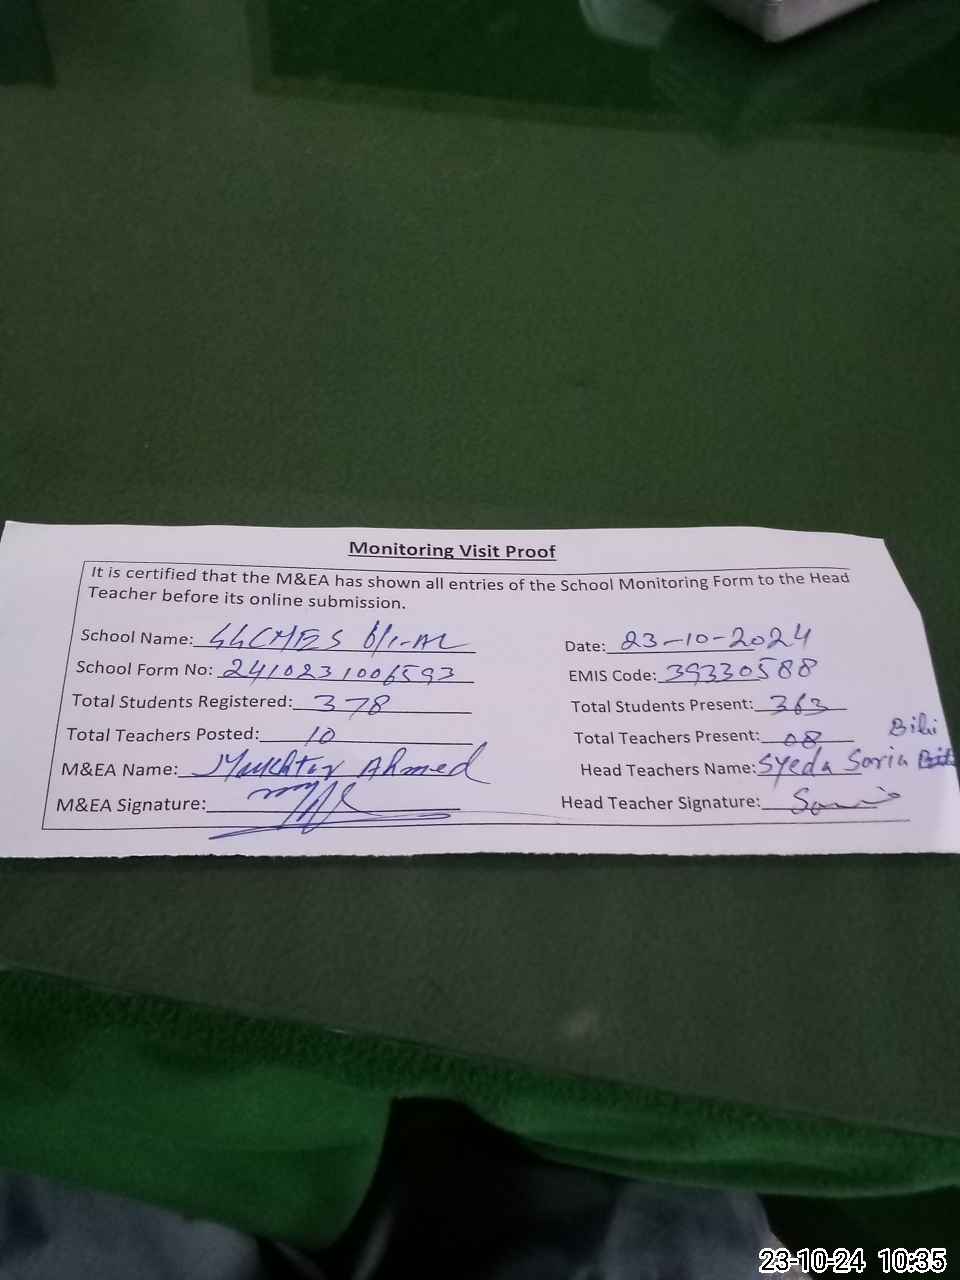 Monitoring Visit Proof
It is certified that the M&EA has shown all entries of the School Monitoring Form to the Head
Teacher before its online submission.
School Name: GGCMES 6/1-AL Date: 23-10-2024
School Form No: 2410231006593 EMIS Code: 39330588
Total Students Registered: 378 Total Students Present: 363
Total Teachers Posted: 10 Total Teachers Present: 08
M&EA Name: Mukhtar Ahmed Head Teachers Name: Syeda Soria Bibi
M&EA Signature: Head Teacher Signature:
23-10-24 10:35